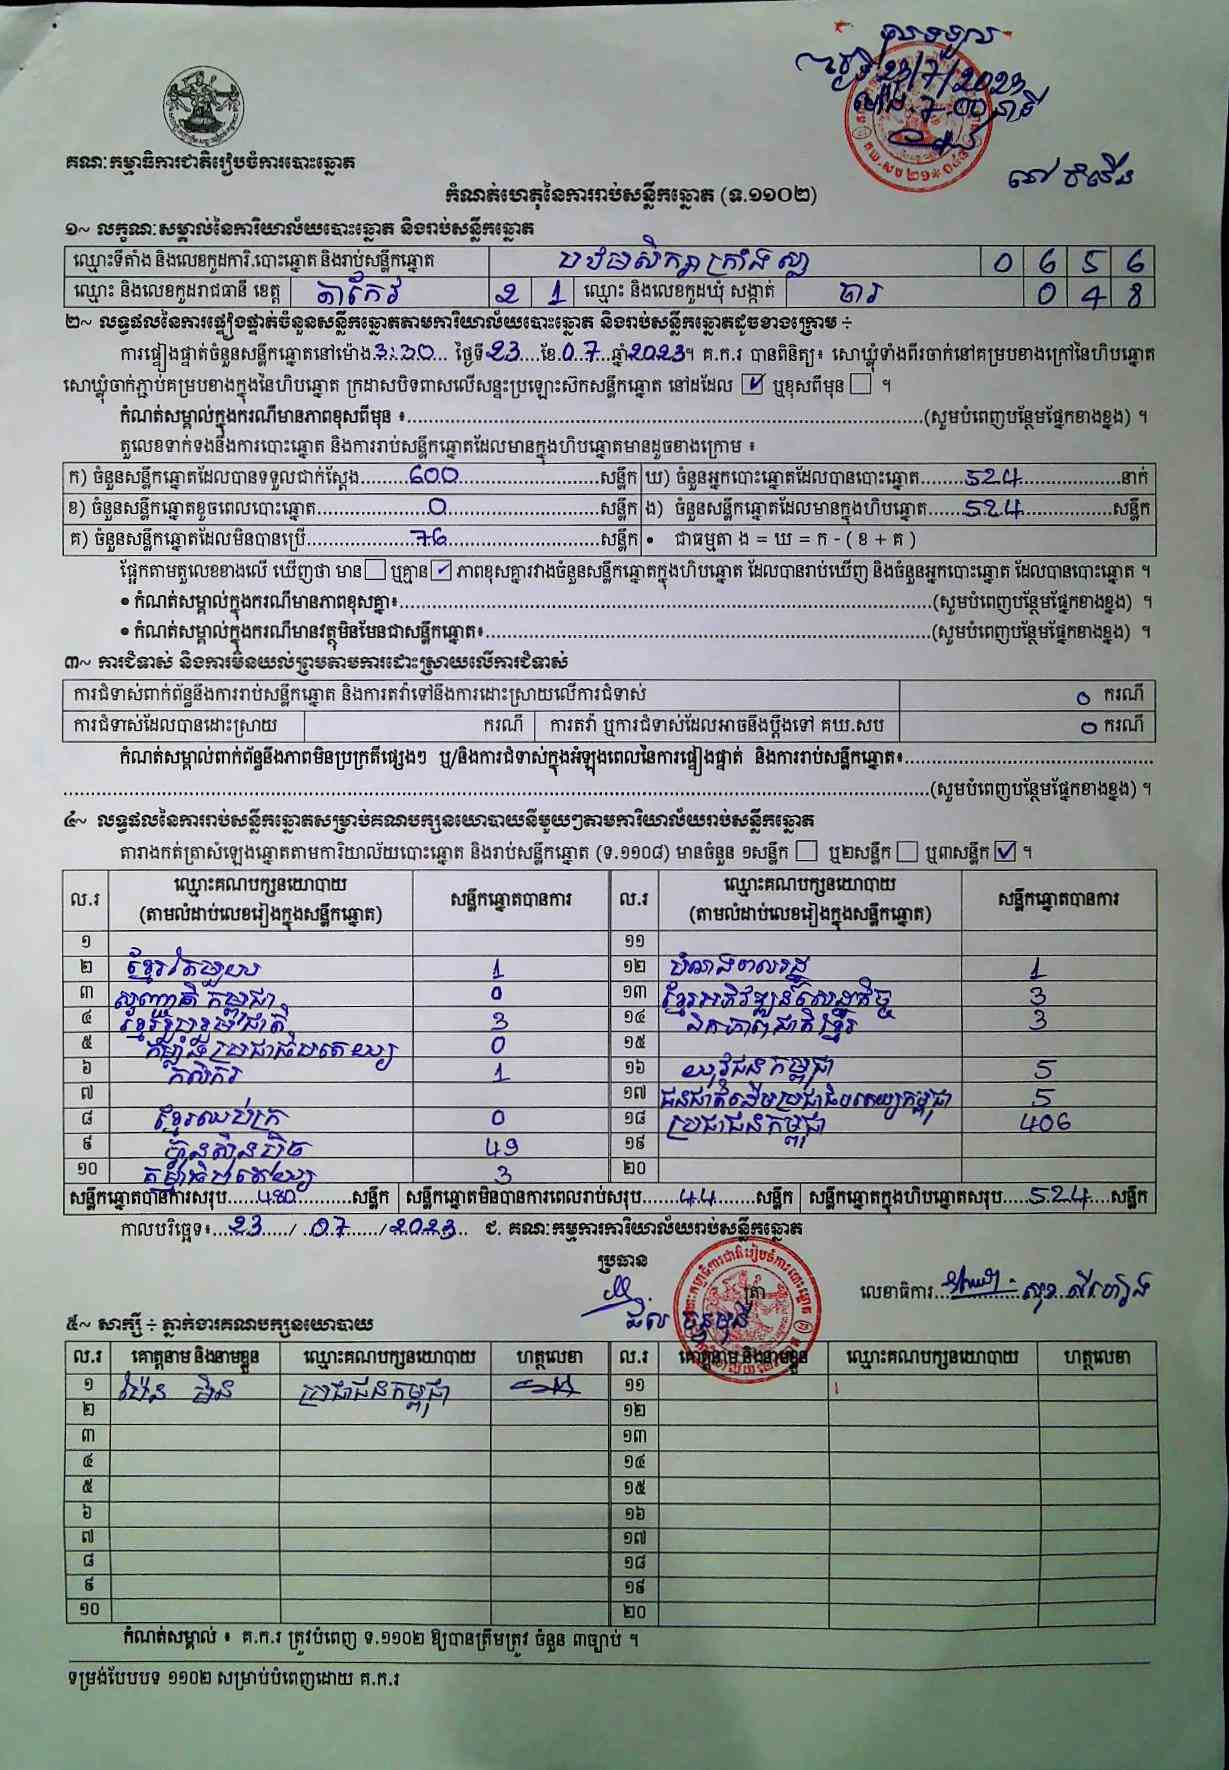 បានទទួល
ថ្ងៃទី 23/7/2023
ម៉ោង 7:00 នាទី
គណៈកម្មាធិការជាតិរៀបចំការបោះឆ្នោត
កំណត់ហេតុនៃការរាប់សន្លឹកឆ្នោត (ទ.១១០២)
១~ លក្ខណៈសម្គាល់នៃការិយាល័យបោះឆ្នោត និងរាប់សន្លឹកឆ្នោត
ឈ្មោះទីតាំង និងលេខកូដការិ.បោះឆ្នោត និងរាប់សន្លឹកឆ្នោត បឋមសិក្សា ក្រាំងស្លា 0 6 5 6
ឈ្មោះ និងលេខកូដរាជធានី ខេត្ត តាកែវ 2 1 ឈ្មោះ និងលេខកូដឃុំ សង្កាត់ បារ 0 4 8
២~ លទ្ធផលនៃការផ្ទៀងផ្ទាត់ចំនួនសន្លឹកឆ្នោតតាមការិយាល័យបោះឆ្នោត និងរាប់សន្លឹកឆ្នោតដូចខាងក្រោម ÷
ការផ្ទៀងផ្ទាត់ចំនួនសន្លឹកឆ្នោតនៅម៉ោង 3:30 ថ្ងៃទី 23 ខែ 07 ឆ្នាំ 2023។ គ.ក.រ បានពិនិត្យ៖ សោឃ្លុំទាំងពីរចាក់នៅគម្របខាងក្រៅនៃហិបឆ្នោត
សោឃ្លុំចាក់ភ្ជាប់គម្របខាងក្នុងនៃហិបឆ្នោត ក្រដាសបិទពាសលើសន្ទះប្រឡោះស៊កសន្លឹកឆ្នោត នៅដដែល ☑ ឬខុសពីមុន ☐ ។
កំណត់សម្គាល់ក្នុងករណីមានភាពខុសពីមុន ៖ (សូមបំពេញបន្ថែមផ្នែកខាងខ្នង) ។
តួលេខទាក់ទងនឹងការបោះឆ្នោត និងការរាប់សន្លឹកឆ្នោតដែលមានក្នុងហិបឆ្នោតមានដូចខាងក្រោម ៖
ក) ចំនួនសន្លឹកឆ្នោតដែលបានទទួលជាក់ស្តែង 600 សន្លឹក ឃ) ចំនួនអ្នកបោះឆ្នោតដែលបានបោះឆ្នោត 524 នាក់
ខ) ចំនួនសន្លឹកឆ្នោតខូចពេលបោះឆ្នោត 0 សន្លឹក ង) ចំនួនសន្លឹកឆ្នោតដែលមានក្នុងហិបឆ្នោត 524 សន្លឹក
គ) ចំនួនសន្លឹកឆ្នោតដែលមិនបានប្រើ 76 សន្លឹក • ជាធម្មតា ង = ឃ = ក - ( ខ + គ )
ផ្អែកតាមតួលេខខាងលើ ឃើញថា មាន ☐ ឬគ្មាន ☑ ភាពខុសគ្នារវាងចំនួនសន្លឹកឆ្នោតក្នុងហិបឆ្នោត ដែលបានរាប់ឃើញ និងចំនួនអ្នកបោះឆ្នោត ដែលបានបោះឆ្នោត ។
• កំណត់សម្គាល់ក្នុងករណីមានភាពខុសគ្នា៖ (សូមបំពេញបន្ថែមផ្នែកខាងខ្នង) ។
• កំណត់សម្គាល់ក្នុងករណីមានវត្ថុមិនមែនជាសន្លឹកឆ្នោត៖ (សូមបំពេញបន្ថែមផ្នែកខាងខ្នង) ។
៣~ ការជំទាស់ និងការមិនយល់ព្រមតាមការដោះស្រាយលើការជំទាស់
ការជំទាស់ពាក់ព័ន្ធនឹងការរាប់សន្លឹកឆ្នោត និងការតវ៉ាទៅនឹងការដោះស្រាយលើការជំទាស់ 0 ករណី
ការជំទាស់ដែលបានដោះស្រាយ ករណី ការតវ៉ា ឬការជំទាស់ដែលអាចនឹងប្តឹងទៅ គឃ.សប 0 ករណី
កំណត់សម្គាល់ពាក់ព័ន្ធនឹងភាពមិនប្រក្រតីផ្សេងៗ ឬ/និងការជំទាស់ក្នុងអំឡុងពេលនៃការផ្ទៀងផ្ទាត់ និងការរាប់សន្លឹកឆ្នោត៖
(សូមបំពេញបន្ថែមផ្នែកខាងខ្នង) ។
៤~ លទ្ធផលនៃការរាប់សន្លឹកឆ្នោតសម្រាប់គណបក្សនយោបាយនីមួយៗតាមការិយាល័យរាប់សន្លឹកឆ្នោត
តារាងកត់ត្រាសំឡេងឆ្នោតតាមការិយាល័យបោះឆ្នោត និងរាប់សន្លឹកឆ្នោត (ទ.១១០៨) មានចំនួន ១សន្លឹក ☐ ឬ២សន្លឹក ☐ ឬ៣សន្លឹក ☑ ។
ល.រ ឈ្មោះគណបក្សនយោបាយ សន្លឹកឆ្នោតបានការ ល.រ ឈ្មោះគណបក្សនយោបាយ សន្លឹកឆ្នោតបានការ
(តាមលំដាប់លេខរៀងក្នុងសន្លឹកឆ្នោត) (តាមលំដាប់លេខរៀងក្នុងសន្លឹកឆ្នោត)
១ ១១
២ ខ្មែរតែមួយ 1 ១២ បំណងពលរដ្ឋ 1
៣ សញ្ជាតិកម្ពុជា 0 ១៣ ខ្មែរអភិវឌ្ឍន៍សេដ្ឋកិច្ច 3
៤ ខ្មែររួបរួមជាតិ 3 ១៤ ឯកភាពជាតិខ្មែរ 3
៥ កម្លាំងប្រជាធិបតេយ្យ 0 ១៥
៦ កសិករ 1 ១៦ យុវជនកម្ពុជា 5
៧ ១៧ ជនជាតិដើមប្រជាធិបតេយ្យកម្ពុជា 5
៨ ខ្មែរឈប់ក្រ 0 ១៨ ប្រជាជនកម្ពុជា 406
៩ ហ៊្វុនស៊ិនប៉ិច 49 ១៩
១០ កម្មាធិបតេយ្យ 3 ២០
សន្លឹកឆ្នោតបានការសរុប 480 សន្លឹក សន្លឹកឆ្នោតមិនបានការពេលរាប់សរុប 44 សន្លឹក សន្លឹកឆ្នោតក្នុងហិបឆ្នោតសរុប 524 សន្លឹក
កាលបរិច្ឆេទ៖ 23 / 07 / 2023 ជ. គណៈកម្មការការិយាល័យរាប់សន្លឹកឆ្នោត
ប្រធាន ត្រា លេខាធិការ
៥~ សាក្សី ÷ ភ្នាក់ងារគណបក្សនយោបាយ
ល.រ គោត្តនាម និងនាមខ្លួន ឈ្មោះគណបក្សនយោបាយ ហត្ថលេខា ល.រ គោត្តនាម និងនាមខ្លួន ឈ្មោះគណបក្សនយោបាយ ហត្ថលេខា
១ ប្រជាជនកម្ពុជា ១១
២ ១២
៣ ១៣
៤ ១៤
៥ ១៥
៦ ១៦
៧ ១៧
៨ ១៨
៩ ១៩
១០ ២០
កំណត់សម្គាល់ ៖ គ.ក.រ ត្រូវបំពេញ ទ.១១០២ ឱ្យបានត្រឹមត្រូវ ចំនួន ៣ច្បាប់ ។
ទម្រង់បែបបទ ១១០២ សម្រាប់បំពេញដោយ គ.ក.រ